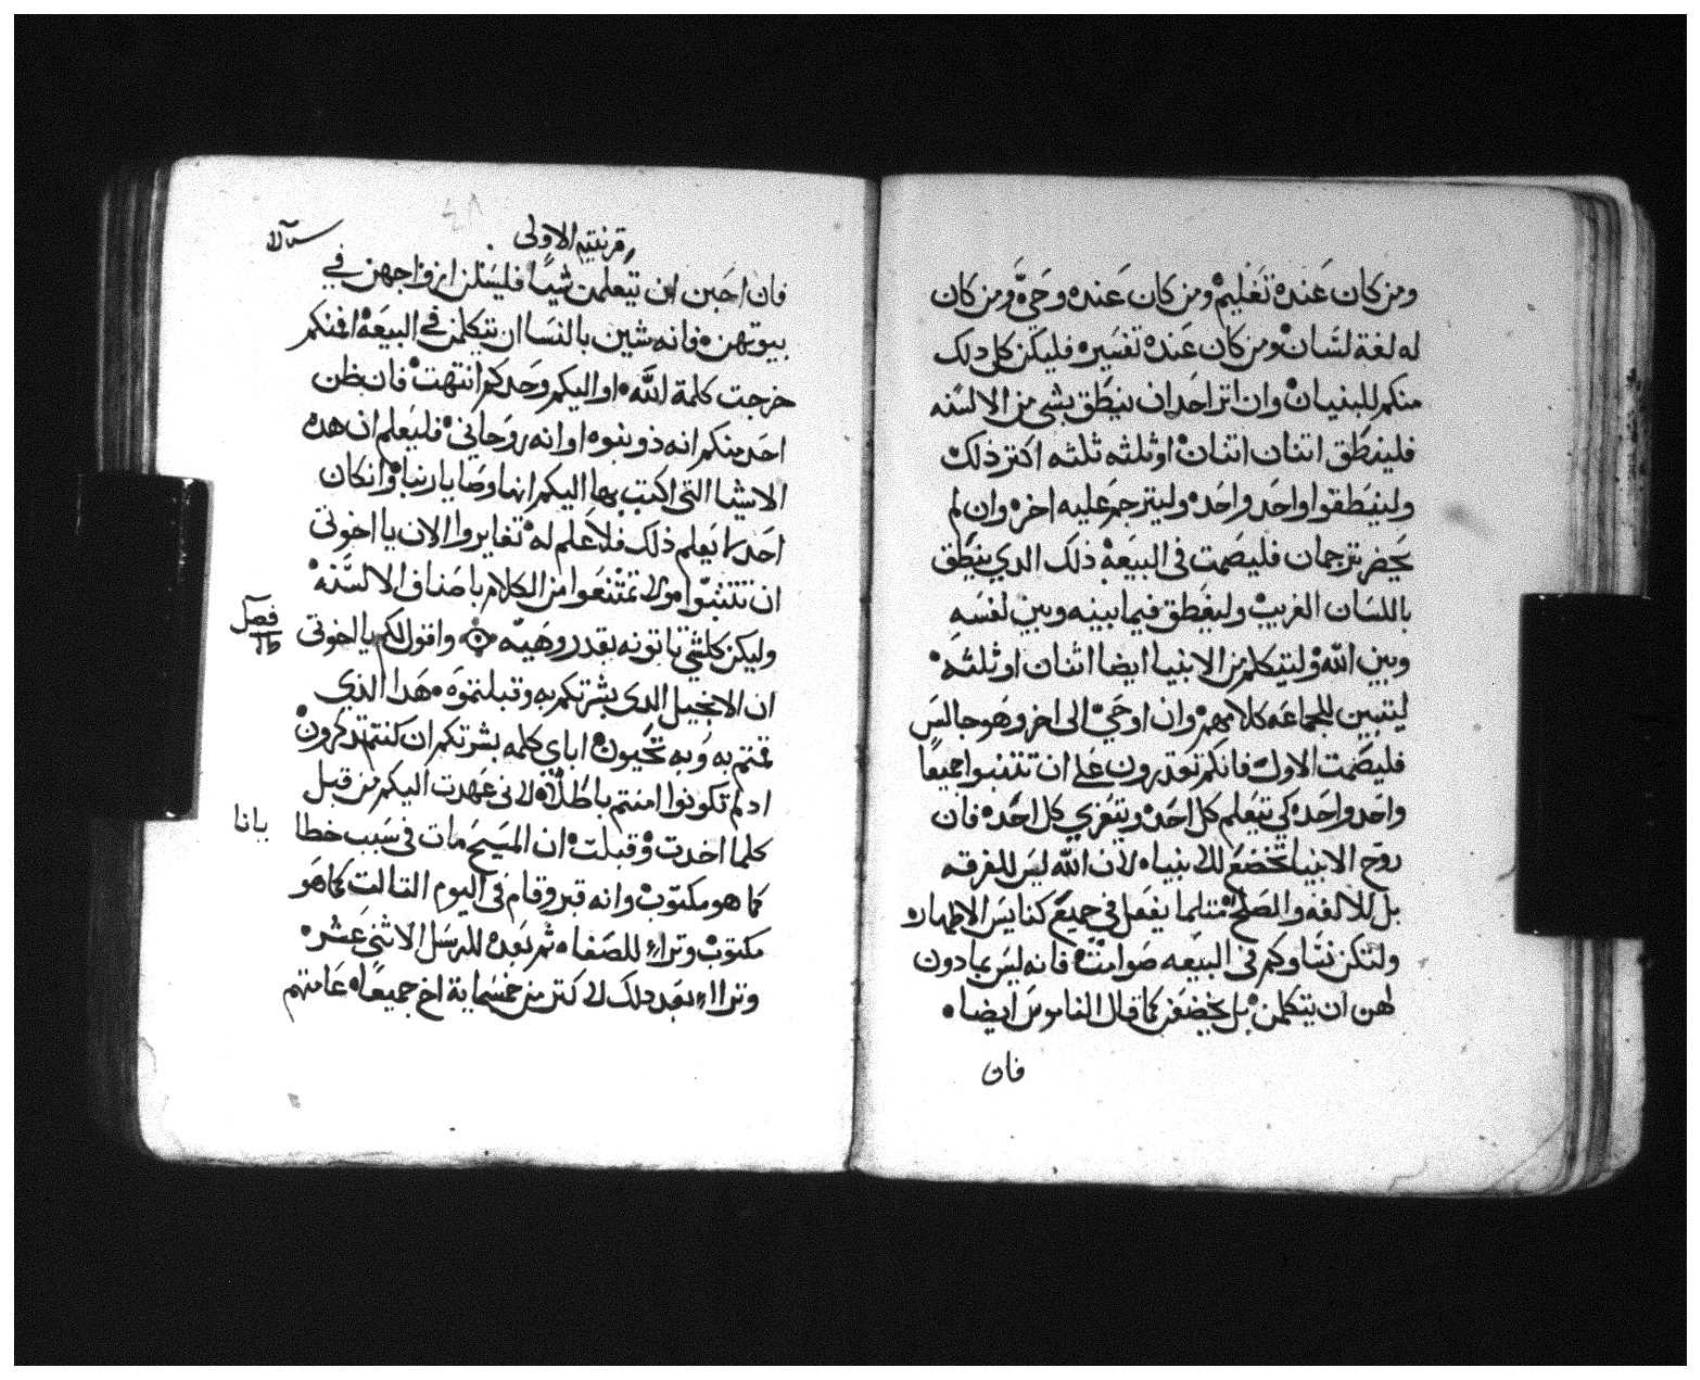 ومن كان عنده تعليم ومن كان عنده وحي ومن كان
له لغة لسان ومن كان عنده تفسير فليكن كل دلك
منكم للبنيان وان اثر احد ان ينطق بشي من الالسنه
فلينطق اتنان اتنان اوثلثه ثلثه اكتر ذلك
ولينطقوا واحد واحد وليترجم عليه اخر وان لم
يحضر ترجمان فليصمت في البيعة ذلك الدي ينطق
باللسان الغريب ولينطق فيما بينه وبين نفسه
وبين الله وليتكلم من الانبيا ايضا اثنان او ثلثه
ليتبين للجماعه كلامهم وان اوحي الى اخر وهو جالس
فليصمت الاول فانكم تقدرون على ان تتنبوا جميعا
واحد واحد كي يتعلم كل احد ويتعزي كل احد فان
روح الانبيا تخضع للانبيا لان الله ليس للفرقه
بل للالفه والصلح مثلما يفعل في جميع كنايس الاطهار
ولتكن نساوكم في البيعه صوامت فانه ليس بمادون
لهن ان يتكلمن بل يخضعن كما قال الناموس ايضا
فان
قرنتيه الاولى
فان احببن ان يتعلمن شيا فليسلن ازواجهن في
بيوتهن فانه شين بالنسا ان يتكلمن في البيعة افمنكم
خرجت كلمة الله او اليكم وحدكم انتهت فان ظن
احد منكم انه ذو نبوه او انه روحاني فليعلم ان هده
الاشيا التي اكتب بها اليكم انها وصايا ربنا وان كان
احد لا يعلم ذلك فلا علم له تغايروا الان يا اخوتي
ان تتنبوا ولا تمتنعوا من الكلام باصناف الالسنه
وليكن كلشي تاتونه بقدر وهيه واقول لكم يا اخوتي
فصل
ان الانجيل الدي بشرتكم به وقبلتموه هدا الذي
قمتم به وبه تحيون اباي كلمه بشرتكم ان كنتم تدكرون
اد لم تكونوا امنتم باطلا لاني عهدت اليكم من قبل
كلما اخدت وقبلت ان المسيح مات في سبب خطايانا
كما هو مكتوب وانه قبر وقام في اليوم التالت كما هو
مكتوب وتراا للصفا ثم بعده للرسل الاثني عشر
وتراا بعد دلك لاكتر من خمسماية اخ جميعا عامتهم